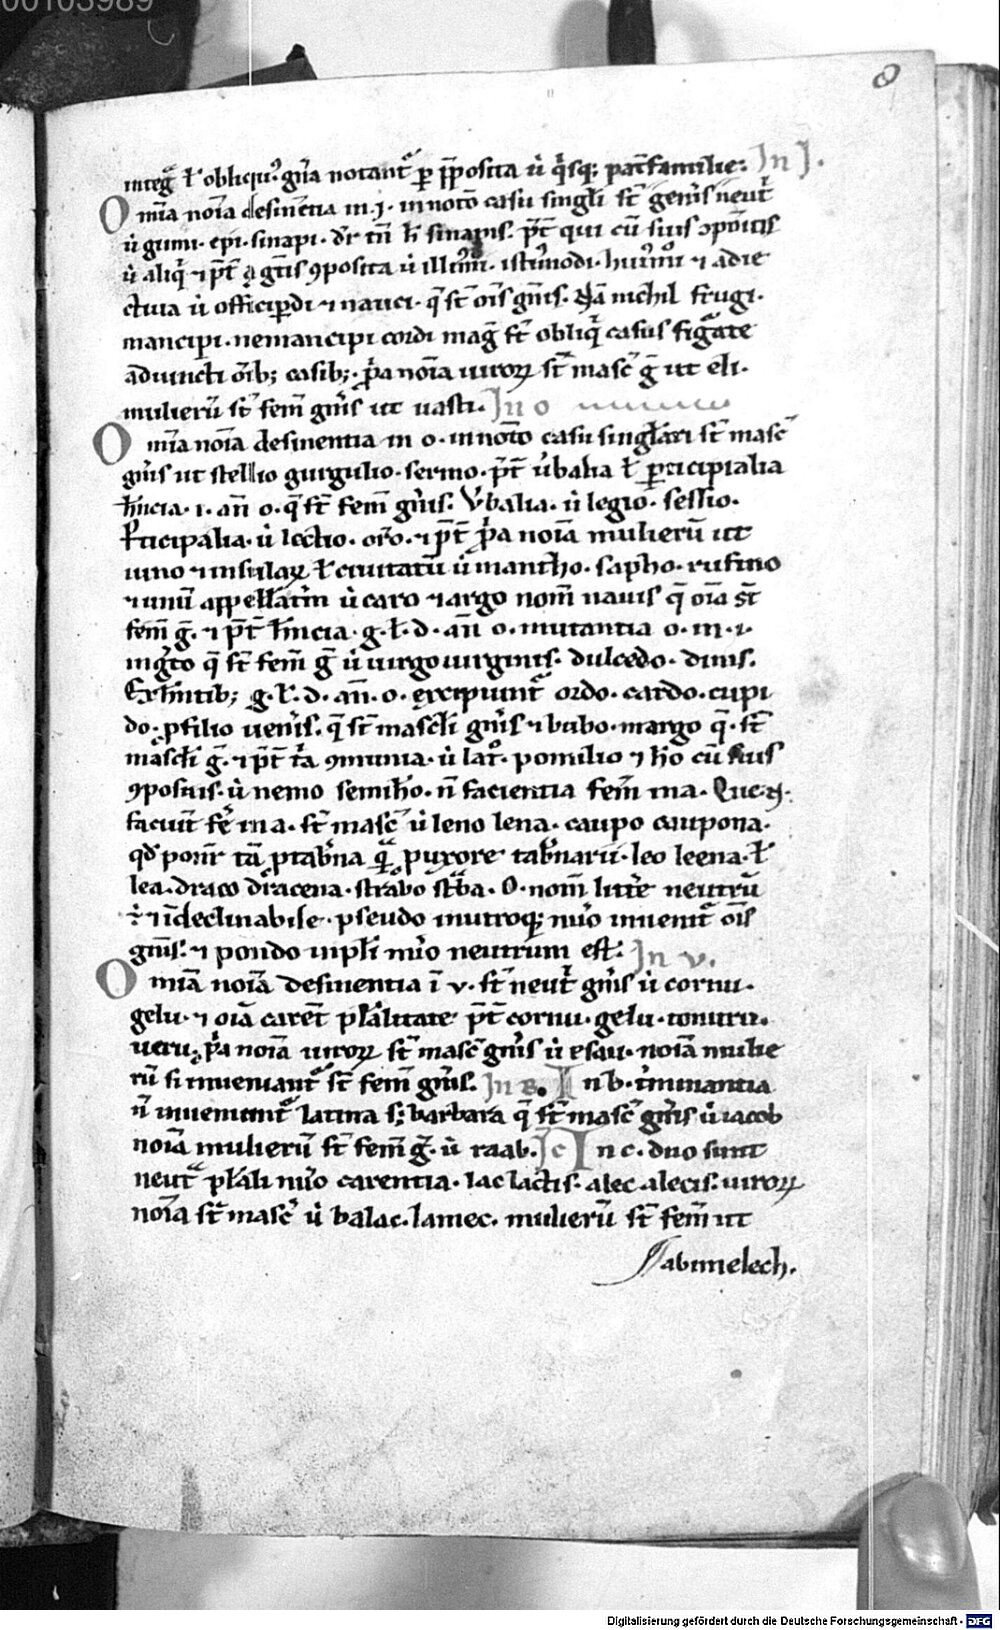 00103989
8
integᷓ ł obliquꝰ. gn̄a notant᷑ ꝑ p̄posita u̇ q̇sqꝫ pat̄familie: In J.
Om̄ia noīa desinētia in .J. in noīto casu singłi st̄ genīs neut᷑
u̇ gumi. epi. sinapi. dr̄ tn̄ h̄ sinapis. p̄t̄ qui cū suis ꝯpoītis
u̇ aliq̇ ⁊ p̄t̄ ꝯposita u̇ illiꝰmōi. istiꝰmodi. huiꝰmōi ⁊ adie
ctiua u̇ officiꝑdi ⁊ nauci. q̄ st̄ oīs gn̄is. Nā nichil frugi.
mancipi. nemancipi cordi magᷓ st̄ obliq̇ casus figᷓate
adiuncti oīb; casib;. p̄pa noīa uiroꝝ st̄ masc̄ ḡ ut eli.
mulierū st̄ fem̄ gn̄is ut uasti. In o
Om̄ia noīa desinentia in o. in noīto casu singłari st̄ masc̄
gn̄is ut stellio gurgulio. sermo. p̄t̄ ūbalia ł ꝑticipialia
h̄ncia .i. an̄ o. q̄ st̄ fem̄ gn̄is. Vbalia. u̇ legio. sessio.
Ꝑticipalia. u̇ lectio. or̄o. ⁊ p̄t̄ p̄pa noīa mulierū ut
iuno ⁊ insulaꝝ ł ciuitatū u̇ mantho. sapho. rufino
⁊ unū appellatīn u̇ caro ⁊ argo nom̄ nauis q̄ oīa st̄
fem̄ ḡ. ⁊ p̄t̄ h̄ncia .g. ł .d. an̄ o. mutantia o. in .i.
in gt̄o q̄ st̄ fem̄ ḡ u̇ uirgo uirginis. dulcedo. dinis.
Ex h̄ntib; .g. ł .d. an̄. o. excipiunt᷑ ordo. cardo. cupi
do. ꝓ filio uenis. q̄ st̄ mascłi gn̄is ⁊ bubo. margo q̄. st̄
mascłi ḡ. ⁊ p̄t̄ ꝯmunia. u̇ lat̄o. pomilio ⁊ ho cū suis
ꝯpositis. u̇ nemo semiho. n̄ facientia fem̄ in a. Que.
faciūt fē in a. st̄ masc̄ u̇ leno lena. caupo caupona.
qd̓ ponit᷑ tā ꝓ tab̄na qᷓ ꝓ uxore tab̄narii. leo leena. ł
lea. draco dracena. strabo stᷓba. O. nom̄ litt̄e neutrū
ē ⁊ īdeclinabile. pseudo in utroqꝫ nūo inuenit᷑ oīs
gn̄is. ⁊ pondo in płi nūo neutrum est. In v.
Om̄ia noīa desinentia ī v. st̄ neut᷑ gn̄is u̇ cornu.
gelu. ⁊ oīa carēt płalitate p̄t̄ cornu. gelu. tonitru.
ueru. p̄pa noīa uiroꝝ st̄ masc̄ gn̄is u̇ esau. noīa mulie
rū si inueniant᷑ st̄ fem̄ gn̄is. In B. In b. t̄minantia
n̄ inueniunt᷑ latina s; barbara q̄ st̄ masc̄ gn̄is u̇ iacob
noīa mulierū st̄ fem̄ ḡ. u̇ raab. Ic In c. duo sunt
neut᷑ płali nūo carentia. lac lactis. alec alecis. uiroꝝ
noīa st̄ masc̄ u̇ balac. lamec. mulierū st̄ fem̄ ut
abimelech.
Digitalisierung gefördert durch die Deutsche Forschungsgemeinschaft - DFG